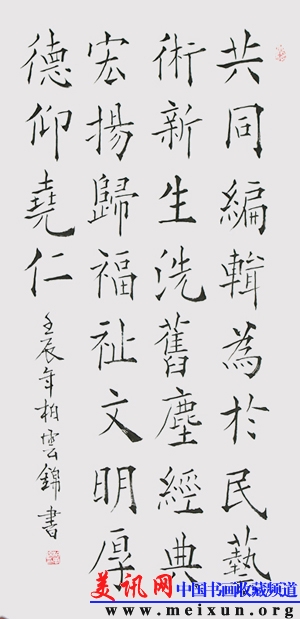 共同編輯為於民藝
術新生洗舊塵經典
宏揚歸福祉文明厚
德仰堯仁
壬辰年柏雲錦書
美讯网 中国书画收藏频道
www.meixun.org